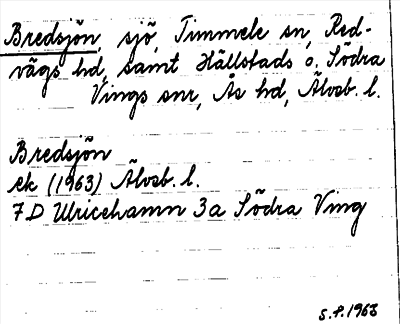 Bredsjön, sjö, Timmele sn, Red-
vägs hd, samt Hällstads o. Södra
Vings snr, Ås hd, Älvsb. l.
Bredsjön
ek (1963) Älvsb. l.
7D Ulricehamn 3a Södra Ving
S.P. 1968